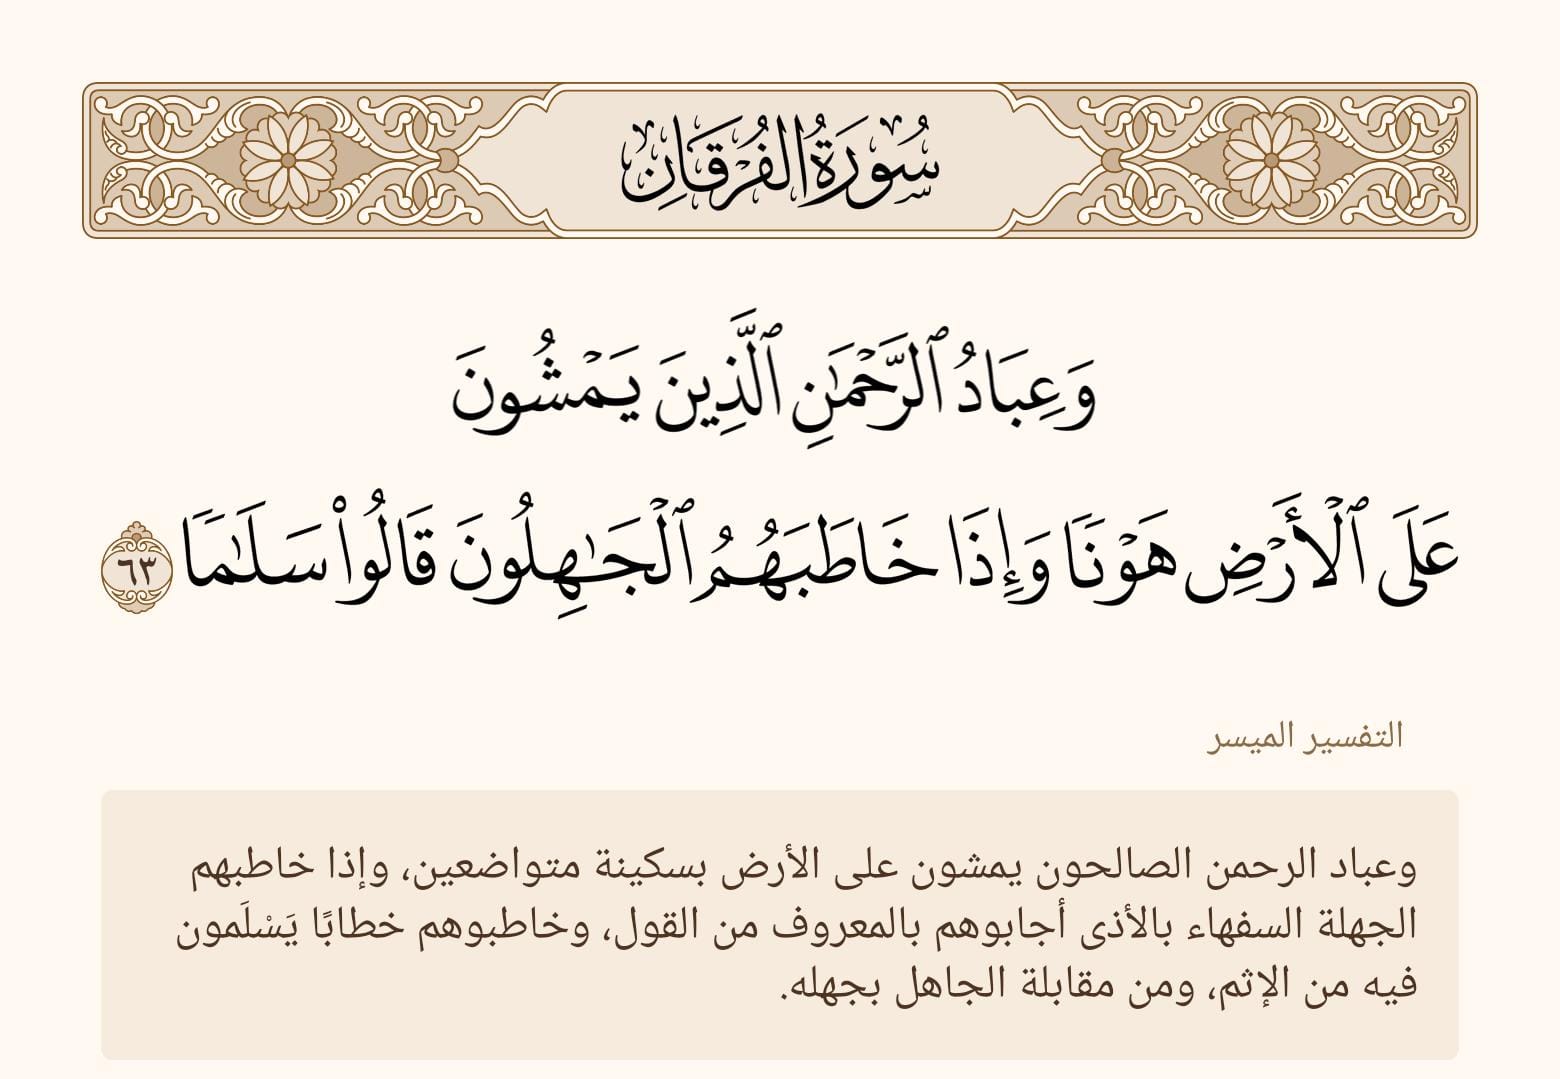 سُورَةُ الفُرْقَانِ
وَعِبَادُ ٱلرَّحۡمَٰنِ ٱلَّذِينَ يَمۡشُونَ
عَلَى ٱلۡأَرۡضِ هَوۡنٗا وَإِذَا خَاطَبَهُمُ ٱلۡجَٰهِلُونَ قَالُواْ سَلَٰمٗا ٦٣
التفسير الميسر
وعباد الرحمن الصالحون يمشون على الأرض بسكينة متواضعين، وإذا خاطبهم
الجهلة السفهاء بالأذى أجابوهم بالمعروف من القول، وخاطبوهم خطابًا يَسْلَمون
فيه من الإثم، ومن مقابلة الجاهل بجهله.